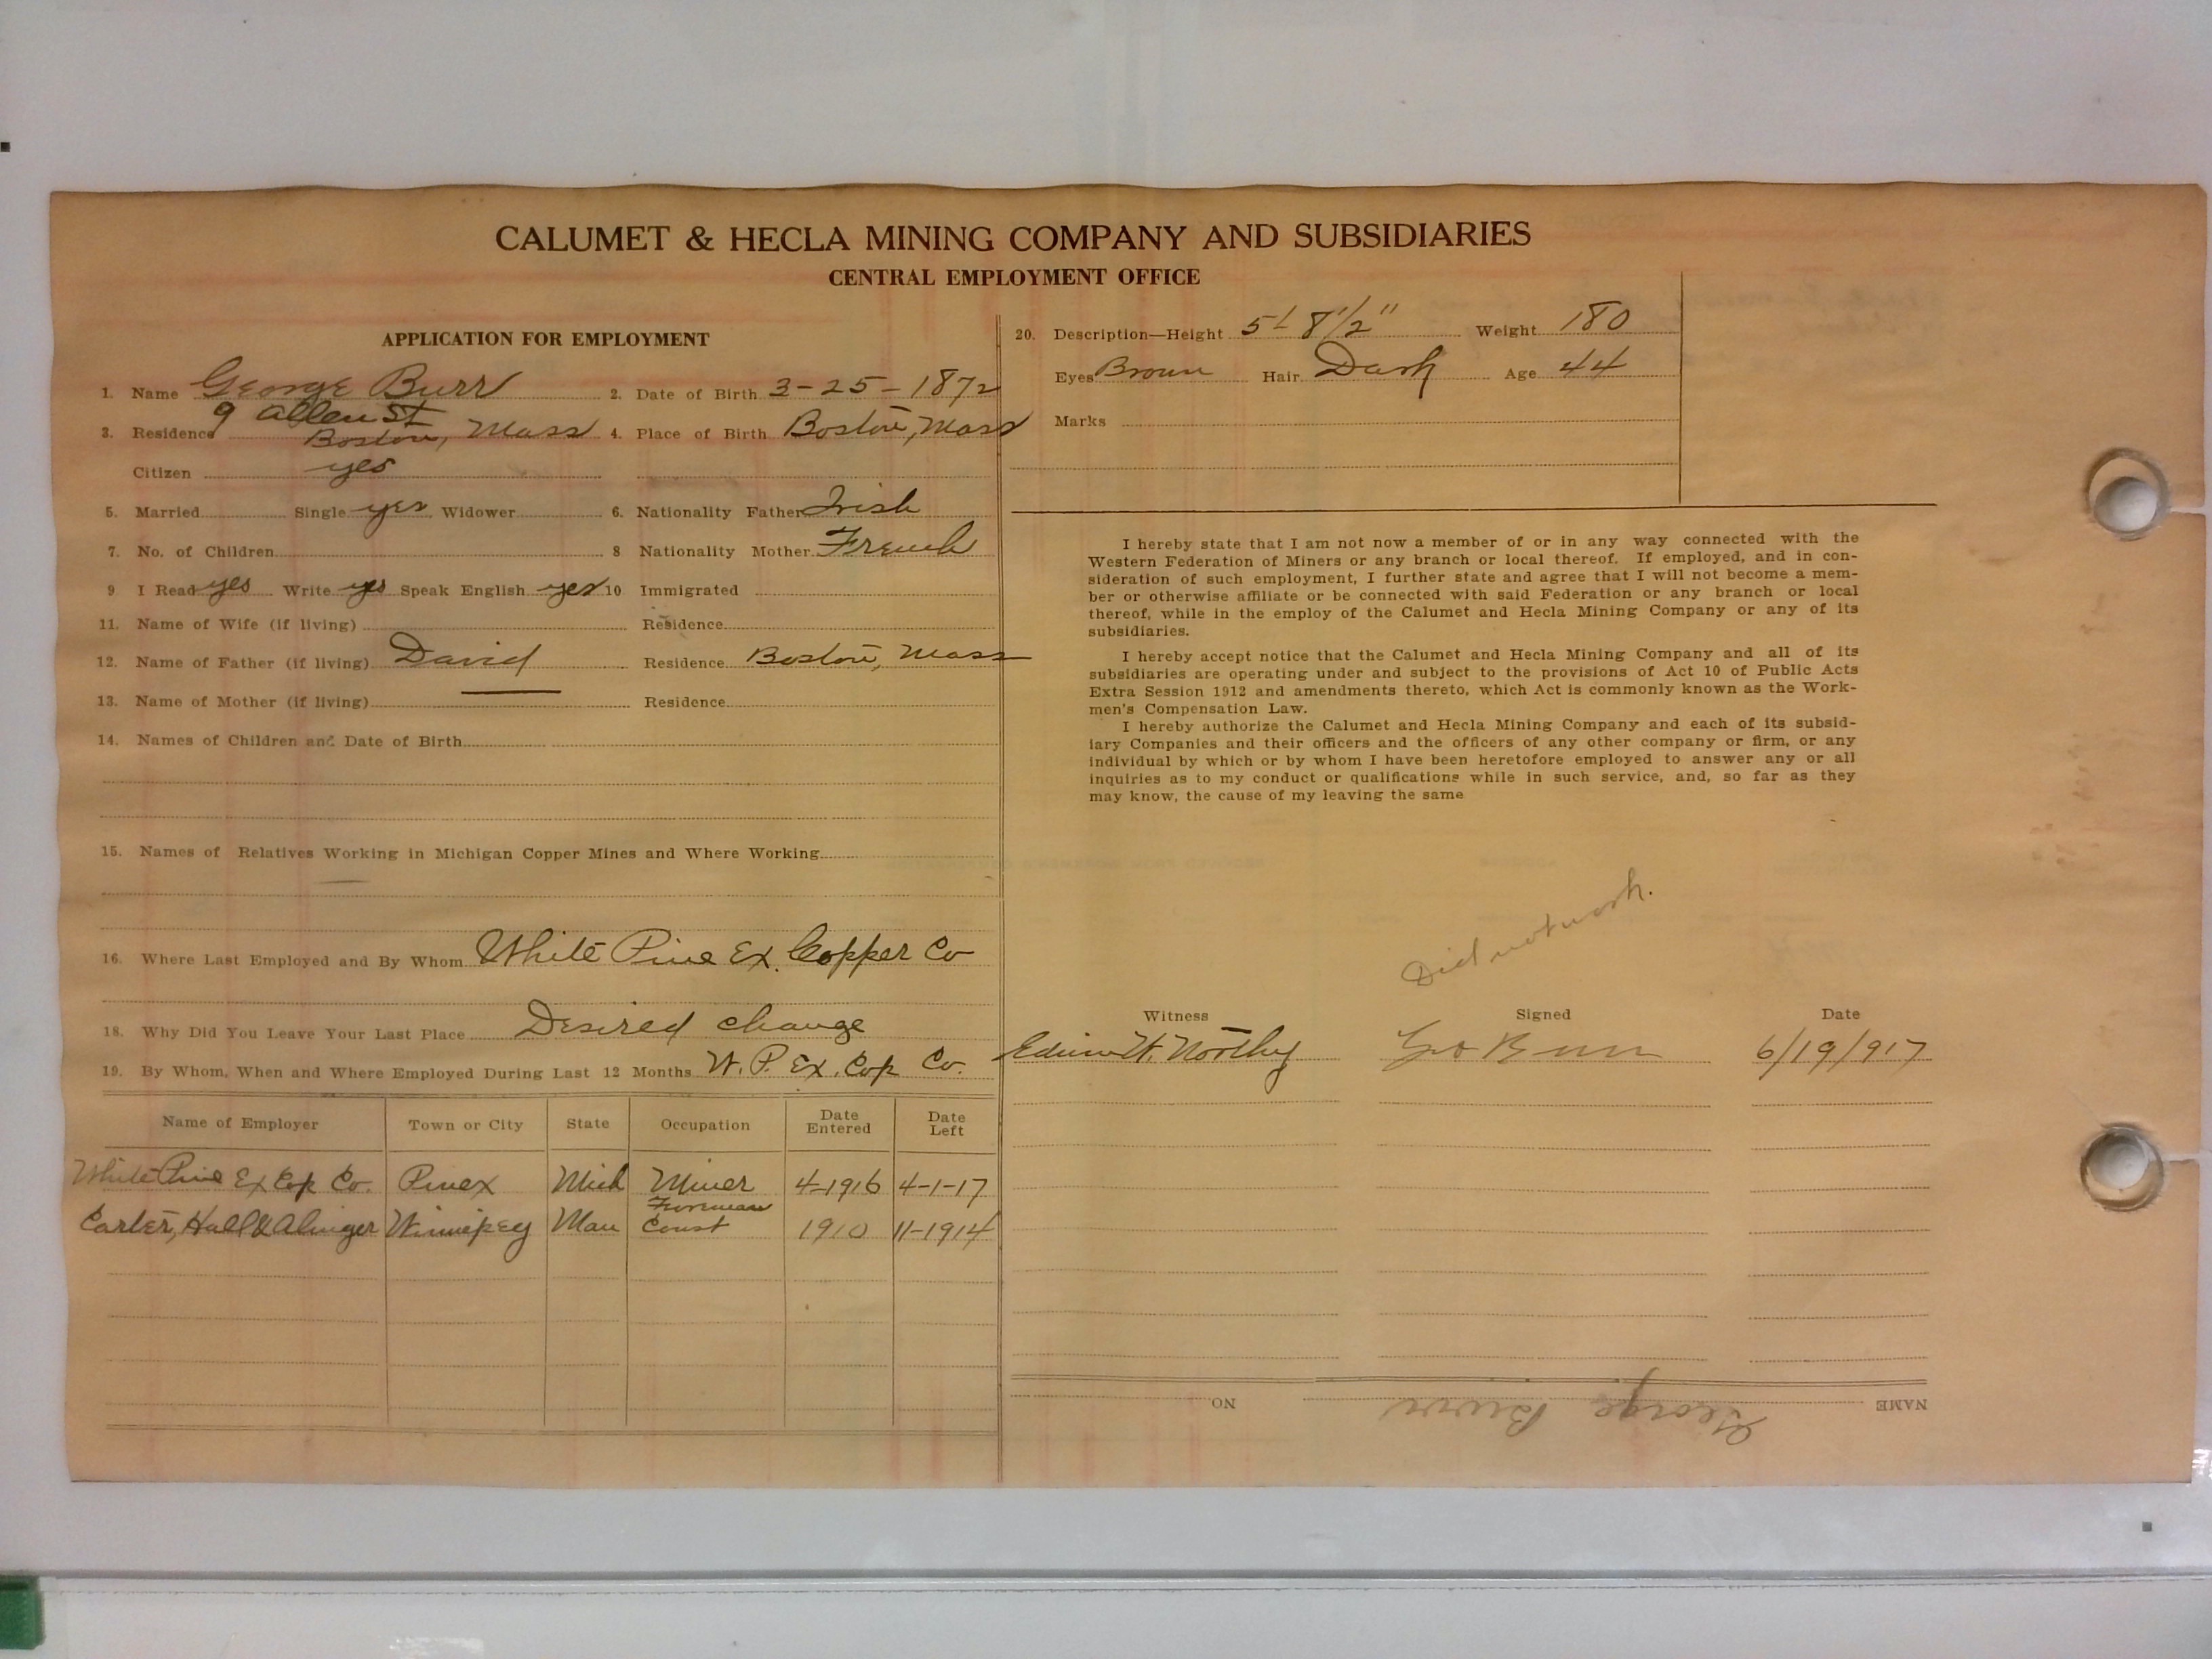 CALUMET & HECLA MINING COMPANY AND SUBSIDIARIES
CENTRAL EMPLOYMENT OFFICE
APPLICATION FOR EMPLOYMENT
1. Name George Burr 2. Date of Birth 3-25-1872
9 Allen St
3. Residence Boston, Mass 4. Place of Birth Boston, Mass
Citizen yes
5. Married Single yes Widower 6. Nationality Father Irish
7. No. of Children 8 Nationality Mother French
9 I Read yes Write yes Speak English yes 10 Immigrated
11. Name of Wife (if living) Residence
12. Name of Father (if living) David Residence Boston, Mass
13. Name of Mother (if living) Residence
14. Names of Children and Date of Birth
15. Names of Relatives Working in Michigan Copper Mines and Where Working
16. Where Last Employed and By Whom White Pine Ex. Copper Co
18. Why Did You Leave Your Last Place Desired change
19. By Whom, When and Where Employed During Last 12 Months W. P. Ex. Cop Co.
Name of Employer Town or City State Occupation Date Entered Date Left
White Pine Ex Cop Co. Pinex Mich Miner 4-1916 4-1-17
Foreman
Carter, Hall & Alinger Winnipeg Man Const 1910 11-1914
20. Description—Height 5' 8 1/2" Weight 180
Eyes Brown Hair Dark Age 44
Marks
I hereby state that I am not now a member of or in any way connected with the
Western Federation of Miners or any branch or local thereof. If employed, and in con-
sideration of such employment, I further state and agree that I will not become a mem-
ber or otherwise affiliate or be connected with said Federation or any branch or local
thereof, while in the employ of the Calumet and Hecla Mining Company or any of its
subsidiaries.
I hereby accept notice that the Calumet and Hecla Mining Company and all of its
subsidiaries are operating under and subject to the provisions of Act 10 of Public Acts
Extra Session 1912 and amendments thereto, which Act is commonly known as the Work-
men's Compensation Law.
I hereby authorize the Calumet and Hecla Mining Company and each of its subsid-
iary Companies and their officers and the officers of any other company or firm, or any
individual by which or by whom I have been heretofore employed to answer any or all
inquiries as to my conduct or qualifications while in such service, and, so far as they
may know, the cause of my leaving the same
Did not work.
Witness Signed Date
Edwin W. Northy Geo Burr 6/19/917
NAME George Burr NO.